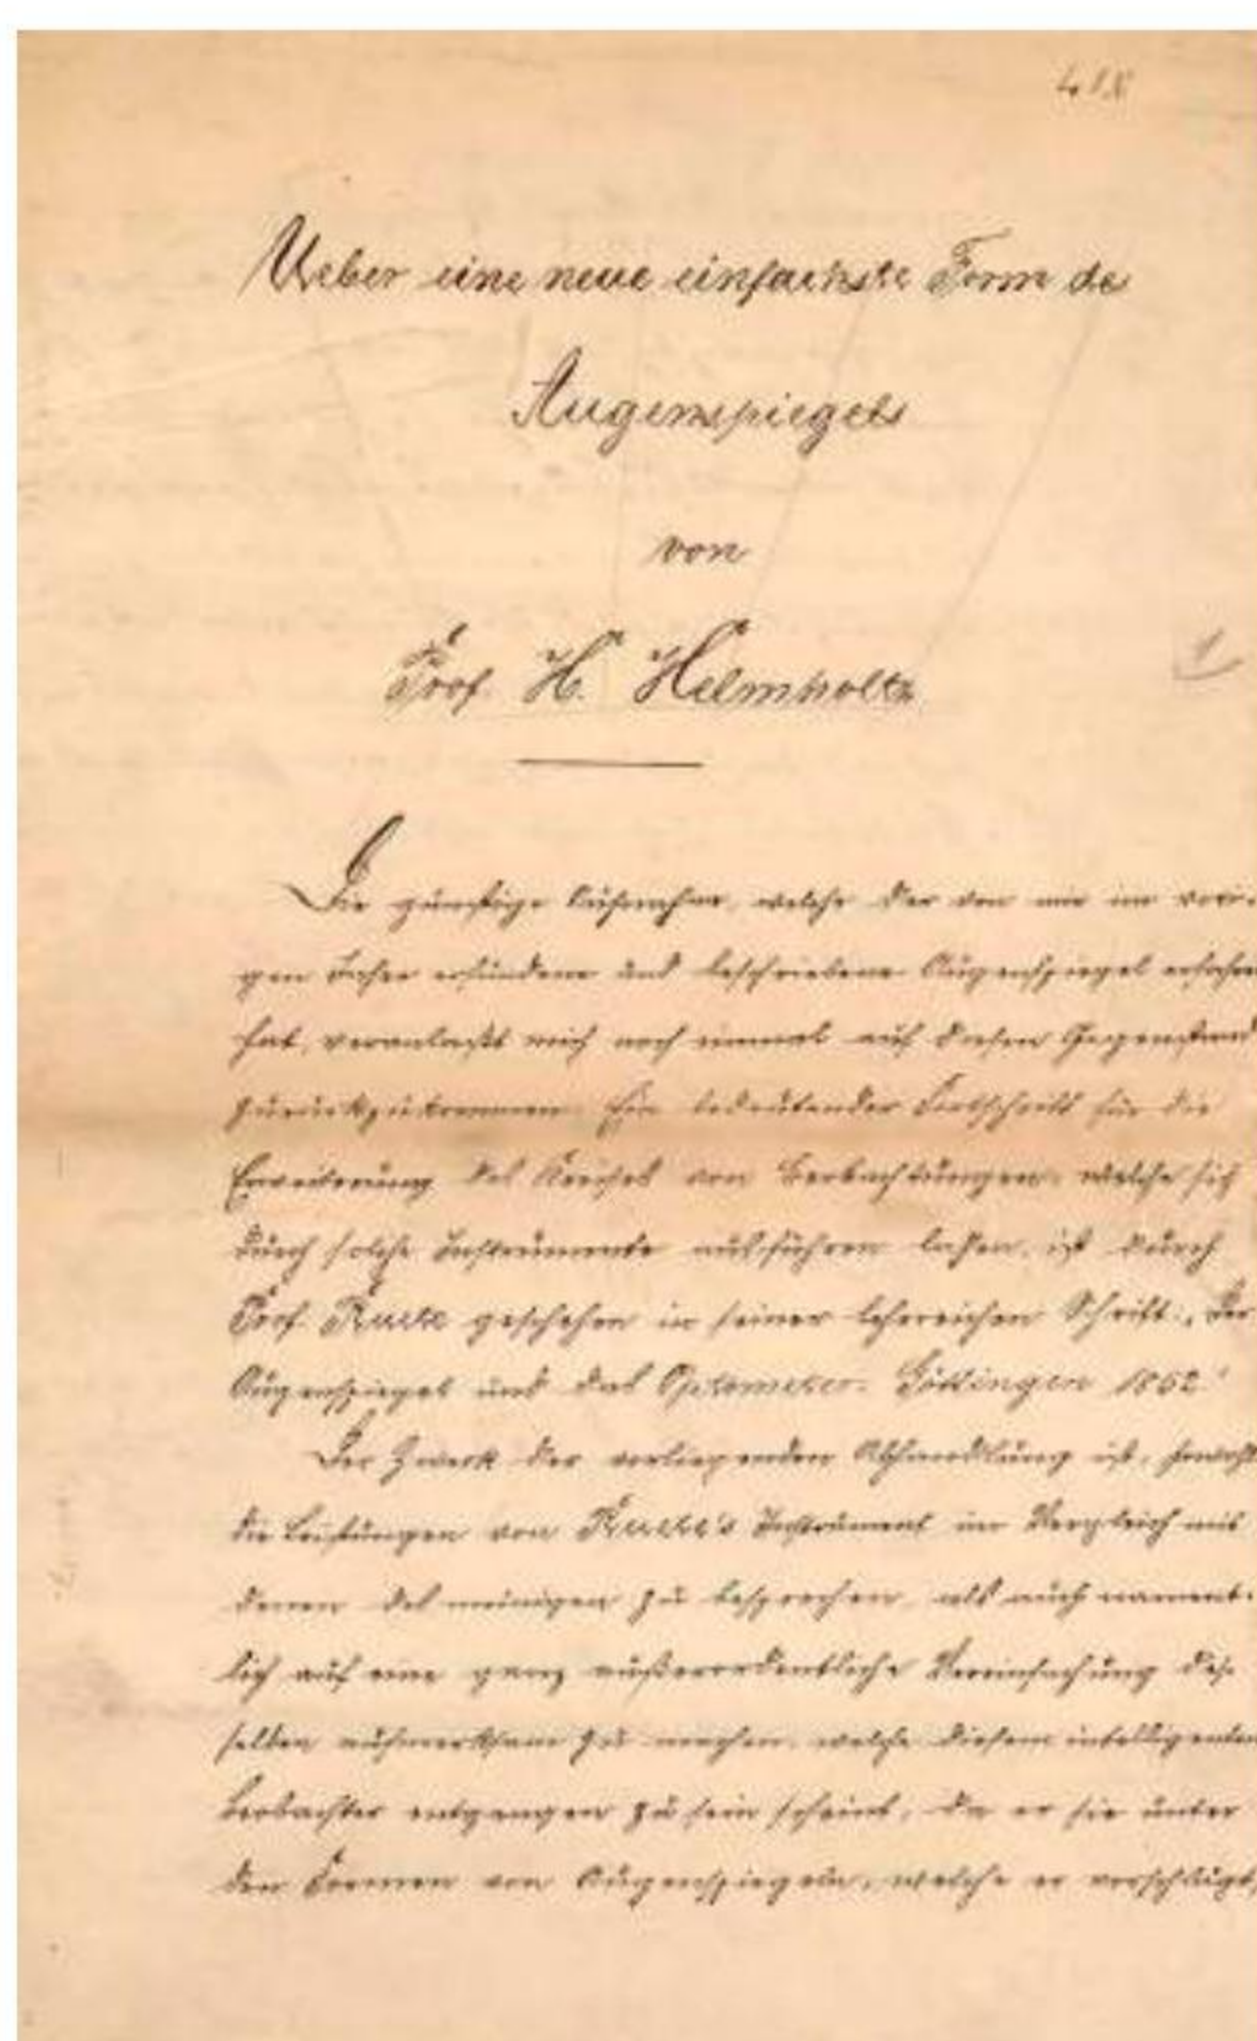 418
Ueber eine neue einfachste Form des
Augenspiegels
von
Prof. H. Helmholtz
1
Die günstige Aufnahme, welche der von mir im vori-
gen Jahre erfundene und beschriebene Augenspiegel erfahren
hat, veranlaßt mich noch einmal auf diesen Gegenstand
zurückzukommen. Ein bedeutender Fortschritt für die
Erweiterung des Kreises von Beobachtungen, welche sich
durch solche Instrumente ausführen laßen, ist durch
Prof. Ruete geschehen in seiner lehrreichen Schrift: „Der
Augenspiegel und das Optometer. Göttingen 1852."
Der Zweck der vorliegenden Abhandlung ist, sowohl
die Leistungen von Ruete's Instrument im Vergleich mit
denen des meinigen zu besprechen, als auch nament-
lich auf eine ganz außerordentliche Vereinfachung des-
selben aufmerksam zu machen, welche diesem intelligenten
Beobachter entgangen zu sein scheint, da er sie unter
den Formen von Augenspiegeln, welche er vorschlägt,